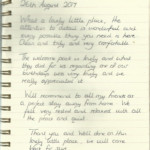 August 2017
What a lovely little place, the
attention to detail is wonderful and
they provide everything you need & have
Clean and tidy and very comfortable.
The welcome pack is lovely and what
they did for us regarding our
was very lovely and we
really appreciated it.
Will recommend to all my friends as
a perfect stay away from home. We
felt very rested and relaxed with all
the peace and quiet.
Thank you and well done on this
lovely little place, we will come
back for sure.